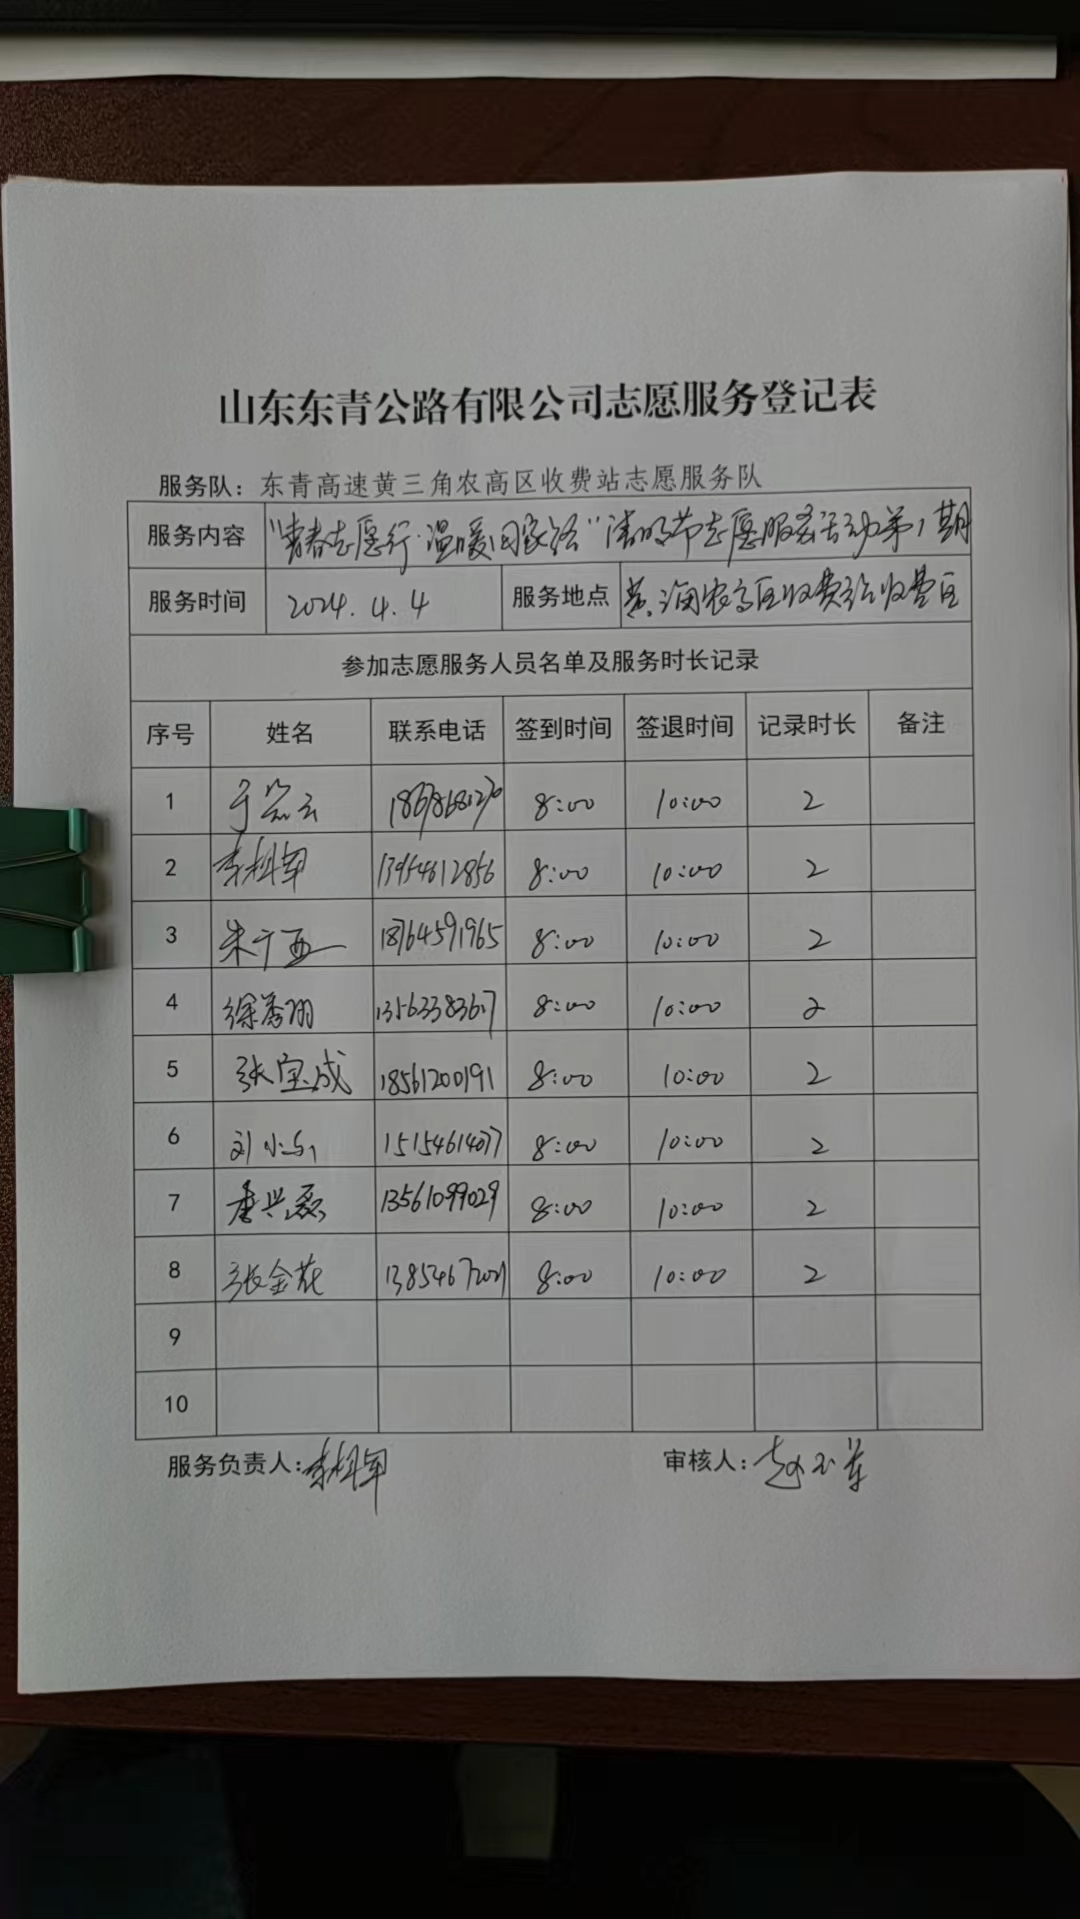 山东东青公路有限公司志愿服务登记表
服务队：东青高速黄三角农高区收费站志愿服务队
服务内容 “青春志愿行·温暖回家路”清明节志愿服务活动第1期
服务时间 2024.4.4 服务地点 农高区收费站收费区
参加志愿服务人员名单及服务时长记录
序号 姓名 联系电话 签到时间 签退时间 记录时长 备注
1 8:00 10:00 2
2 李相军 13954612856 8:00 10:00 2
3 朱广西 18764591965 8:00 10:00 2
4 徐秀翔 13563383607 8:00 10:00 2
5 张宝成 18561200191 8:00 10:00 2
6 15154614077 8:00 10:00 2
7 唐兴磊 13561099029 8:00 10:00 2
8 张金花 8:00 10:00 2
9
10
服务负责人：李相军 审核人：赵玉军